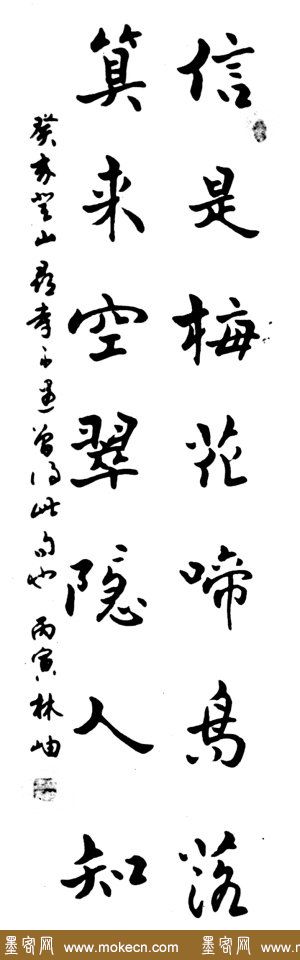 信是梅花啼鳥落
算来空翠隐人知
癸亥登山尋不遇曾得此句也 丙寅林岫
墨客网 www.mokecn.com 墨客网 www.mokecn.com